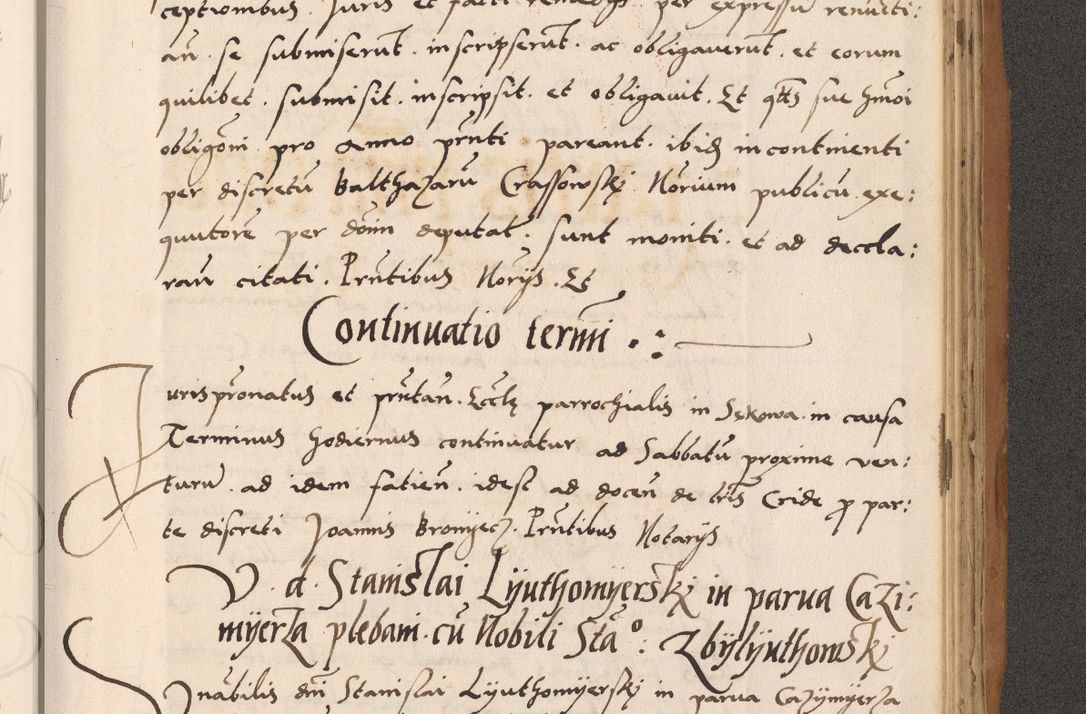 ceptionibus. Juris et facti remedijs per expressũ renũcti:
añ. se submiserũt. inscripserũt. ac obligaverũt. et eorum
quilibet. submisit. inscripsit. et obligavit. Et qtĩs sue hmõi
obligõni pro anno prñti pareant. ibid incontinenti
per discretũ Balthazarũ Crassowskj Norium publicũ exe:
quutorẽ per dõim deputat̃. sunt moniti. et ad deccla:
rañ citati. Prñtibus Norijs. Et
Continuatio termĩ
Jurisprõnatus et prñtañ. Eccłę parrochialis in Sękowa. in causa
Terminus hodiernus continuatur ad Sabbatũ proxime ven:
turũ. ad idem facień. idest ad doceñ de lrĩs Cride p par:
te discreti Joannis Bronijecz. Prñtibus Notarijs
V. d. Stanislai Lyuthomyerskj in parua Cazi:
myerza plebani. cũ Nobili Stão: Zbylyuthowskj
In cã hõnabilis dñi Stanislai Lyuthomyerskj in parua Cazymyerza